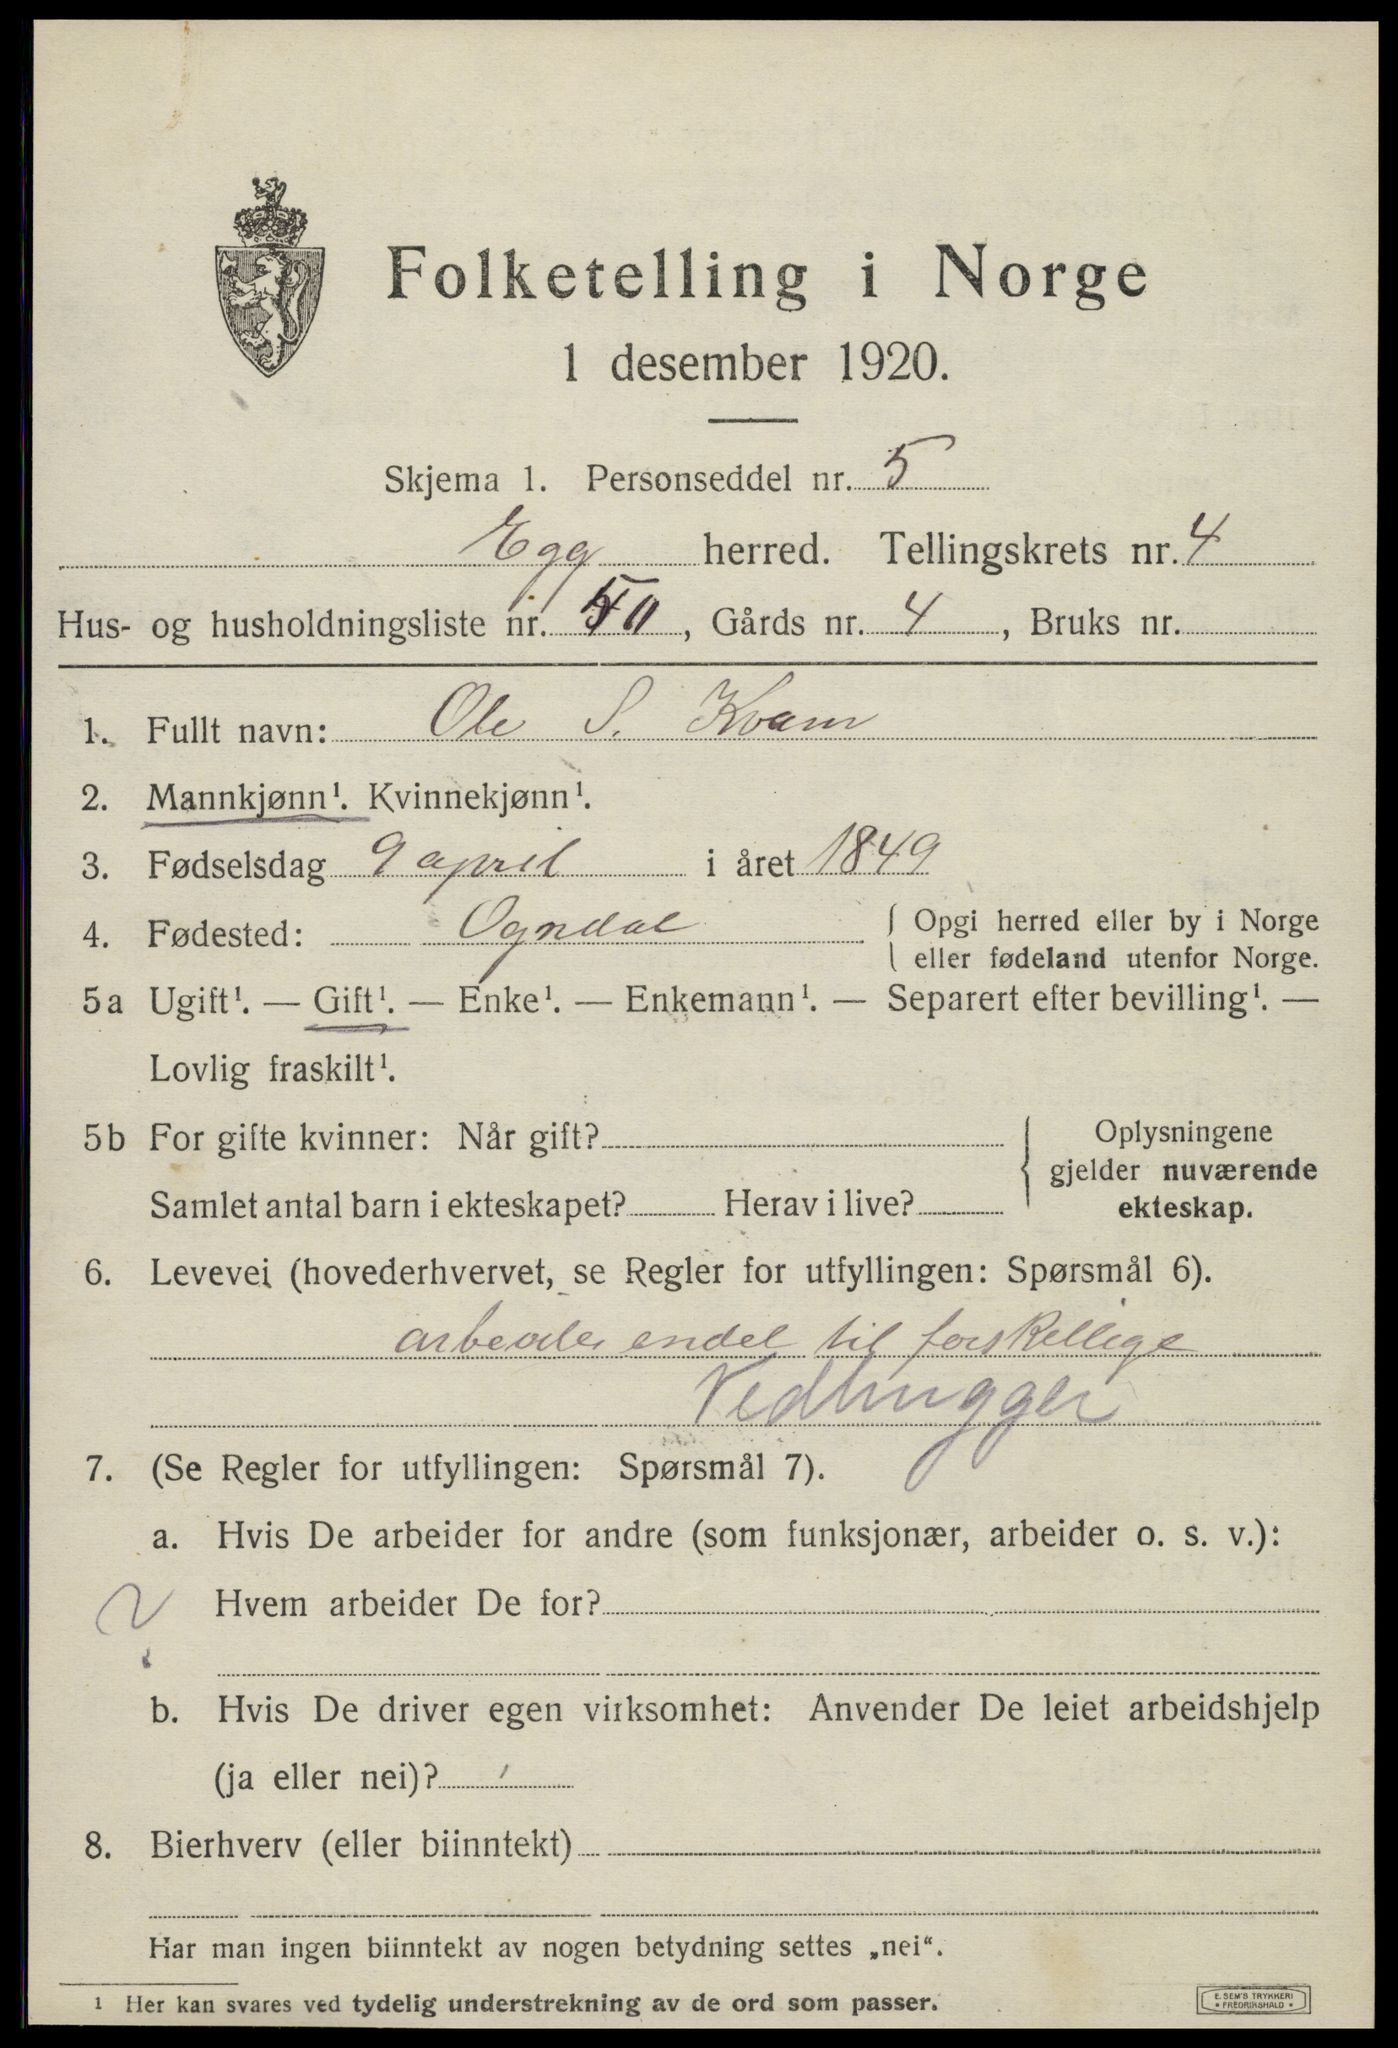 Folketelling i Norge
1 desember 1920.
Skjema 1. Personseddel nr. 5
Egg herred. Tellingskrets nr. 4
Hus- og husholdningsliste nr. , Gårds nr. 4, Bruks nr.
1. Fullt navn: Ole S. Kvam
2. Mannkjønn¹. Kvinnekjønn¹.
3. Fødselsdag 9 april i året 1849
4. Fødested: Ogndal { Opgi herred eller by i Norge
eller fødeland utenfor Norge.
5a Ugift¹. — Gift¹. — Enke¹. — Enkemann¹. — Separert efter bevilling¹. —
Lovlig fraskilt¹.
5b For gifte kvinner: Når gift? { Oplysningene
gjelder nuværende
Samlet antal barn i ekteskapet? Herav i live? ekteskap.
6. Levevei (hovederhvervet, se Regler for utfyllingen: Spørsmål 6).
endel til forskellige
Vedhugger
7. (Se Regler for utfyllingen: Spørsmål 7).
a. Hvis De arbeider for andre (som funksjonær, arbeider o. s. v.):
Hvem arbeider De for?
b. Hvis De driver egen virksomhet: Anvender De leiet arbeidshjelp
(ja eller nei)?
8. Bierhverv (eller biinntekt)
Har man ingen biinntekt av nogen betydning settes „nei“.
¹ Her kan svares ved tydelig understrekning av de ord som passer.
E. SEM'S TRYKKERI
• FREDRIKSHALD •